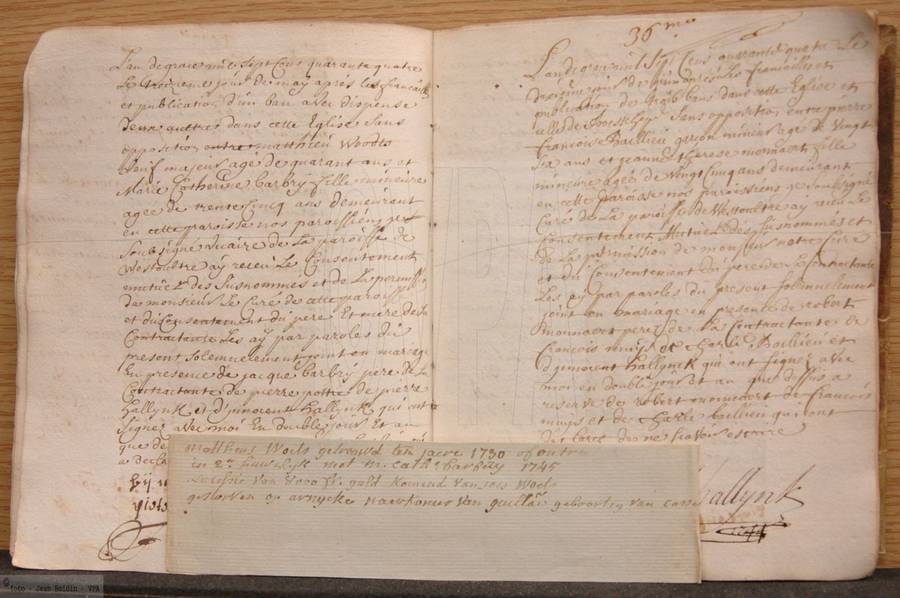 L'an de grace mil sept Cens quarante quatre
Le troisieme jour de may aprés les fiancailles
et publication d'un ban avec dispense
de aultres dans cette Eglise sans
opposition entre matthieu Woodts
Veuf majeur agé de quarant ans et
Marie Catherine barbry fille mineure
agee de trente Cincq ans demeurant
en cette paroisse nos paroissiens je
soubsigné vicaire de La paroisse de
Westoultre aÿ receu Le Consentement
mutuel des susnommes et de La permission
de monsieur Le Curé de cette paroisse
et du Consentement du pere Et mere de la
Contractante Les aÿ par paroles du
present solemnelement joint en mariage
En presence de jacque barbrÿ pere de La
Contractante de pierre pottie de pierre
hallynk et d'ynnocent hallynk qui ont
signez avec moi En double jour Et an
que de
a declaré
36 me
L'an de grace mil Sept Cens quarante quatre Le
jour de aprés Les fiancailles et
publication de trois bans dans cette Eglise et
celle de Boesschepe Sans opposition entre pierre
francois Baillieu garçon mineur age de Vingt
Six ans et jeanne therese monnaert fille
mineure agée de Vingt Cinq ans demeurant
en cette paroisse nos paroissiens je soubsigné
Curé de La paroisse de Westoultre aÿ receu Le
Consentement mutuel des susnommés et
de La permission de monsieur notre Curé
et du Consentement du pere de La Contractante
Les aÿ par paroles du present solemnellement
joint en mariage en presence de robert
monnaert pere de La contractante de
francois et Charle Baillieu et
d'ynnocent hallynk qui ont signez avec
moi en double jour et an que dessus a
reserve de robert monnaert de francois
et de Charle baillieu qui ont
declaré de ne scavoir escrire
hallynk
mattheus Woets getrouwd ten jaere 1730
in 2en huwelijk met m. cath. barbry 1745
van 4000 fr. geld komend van Woets
gestorven op naerkomer van guill. geboortig van
©
foto - Jean Boidin - VVA